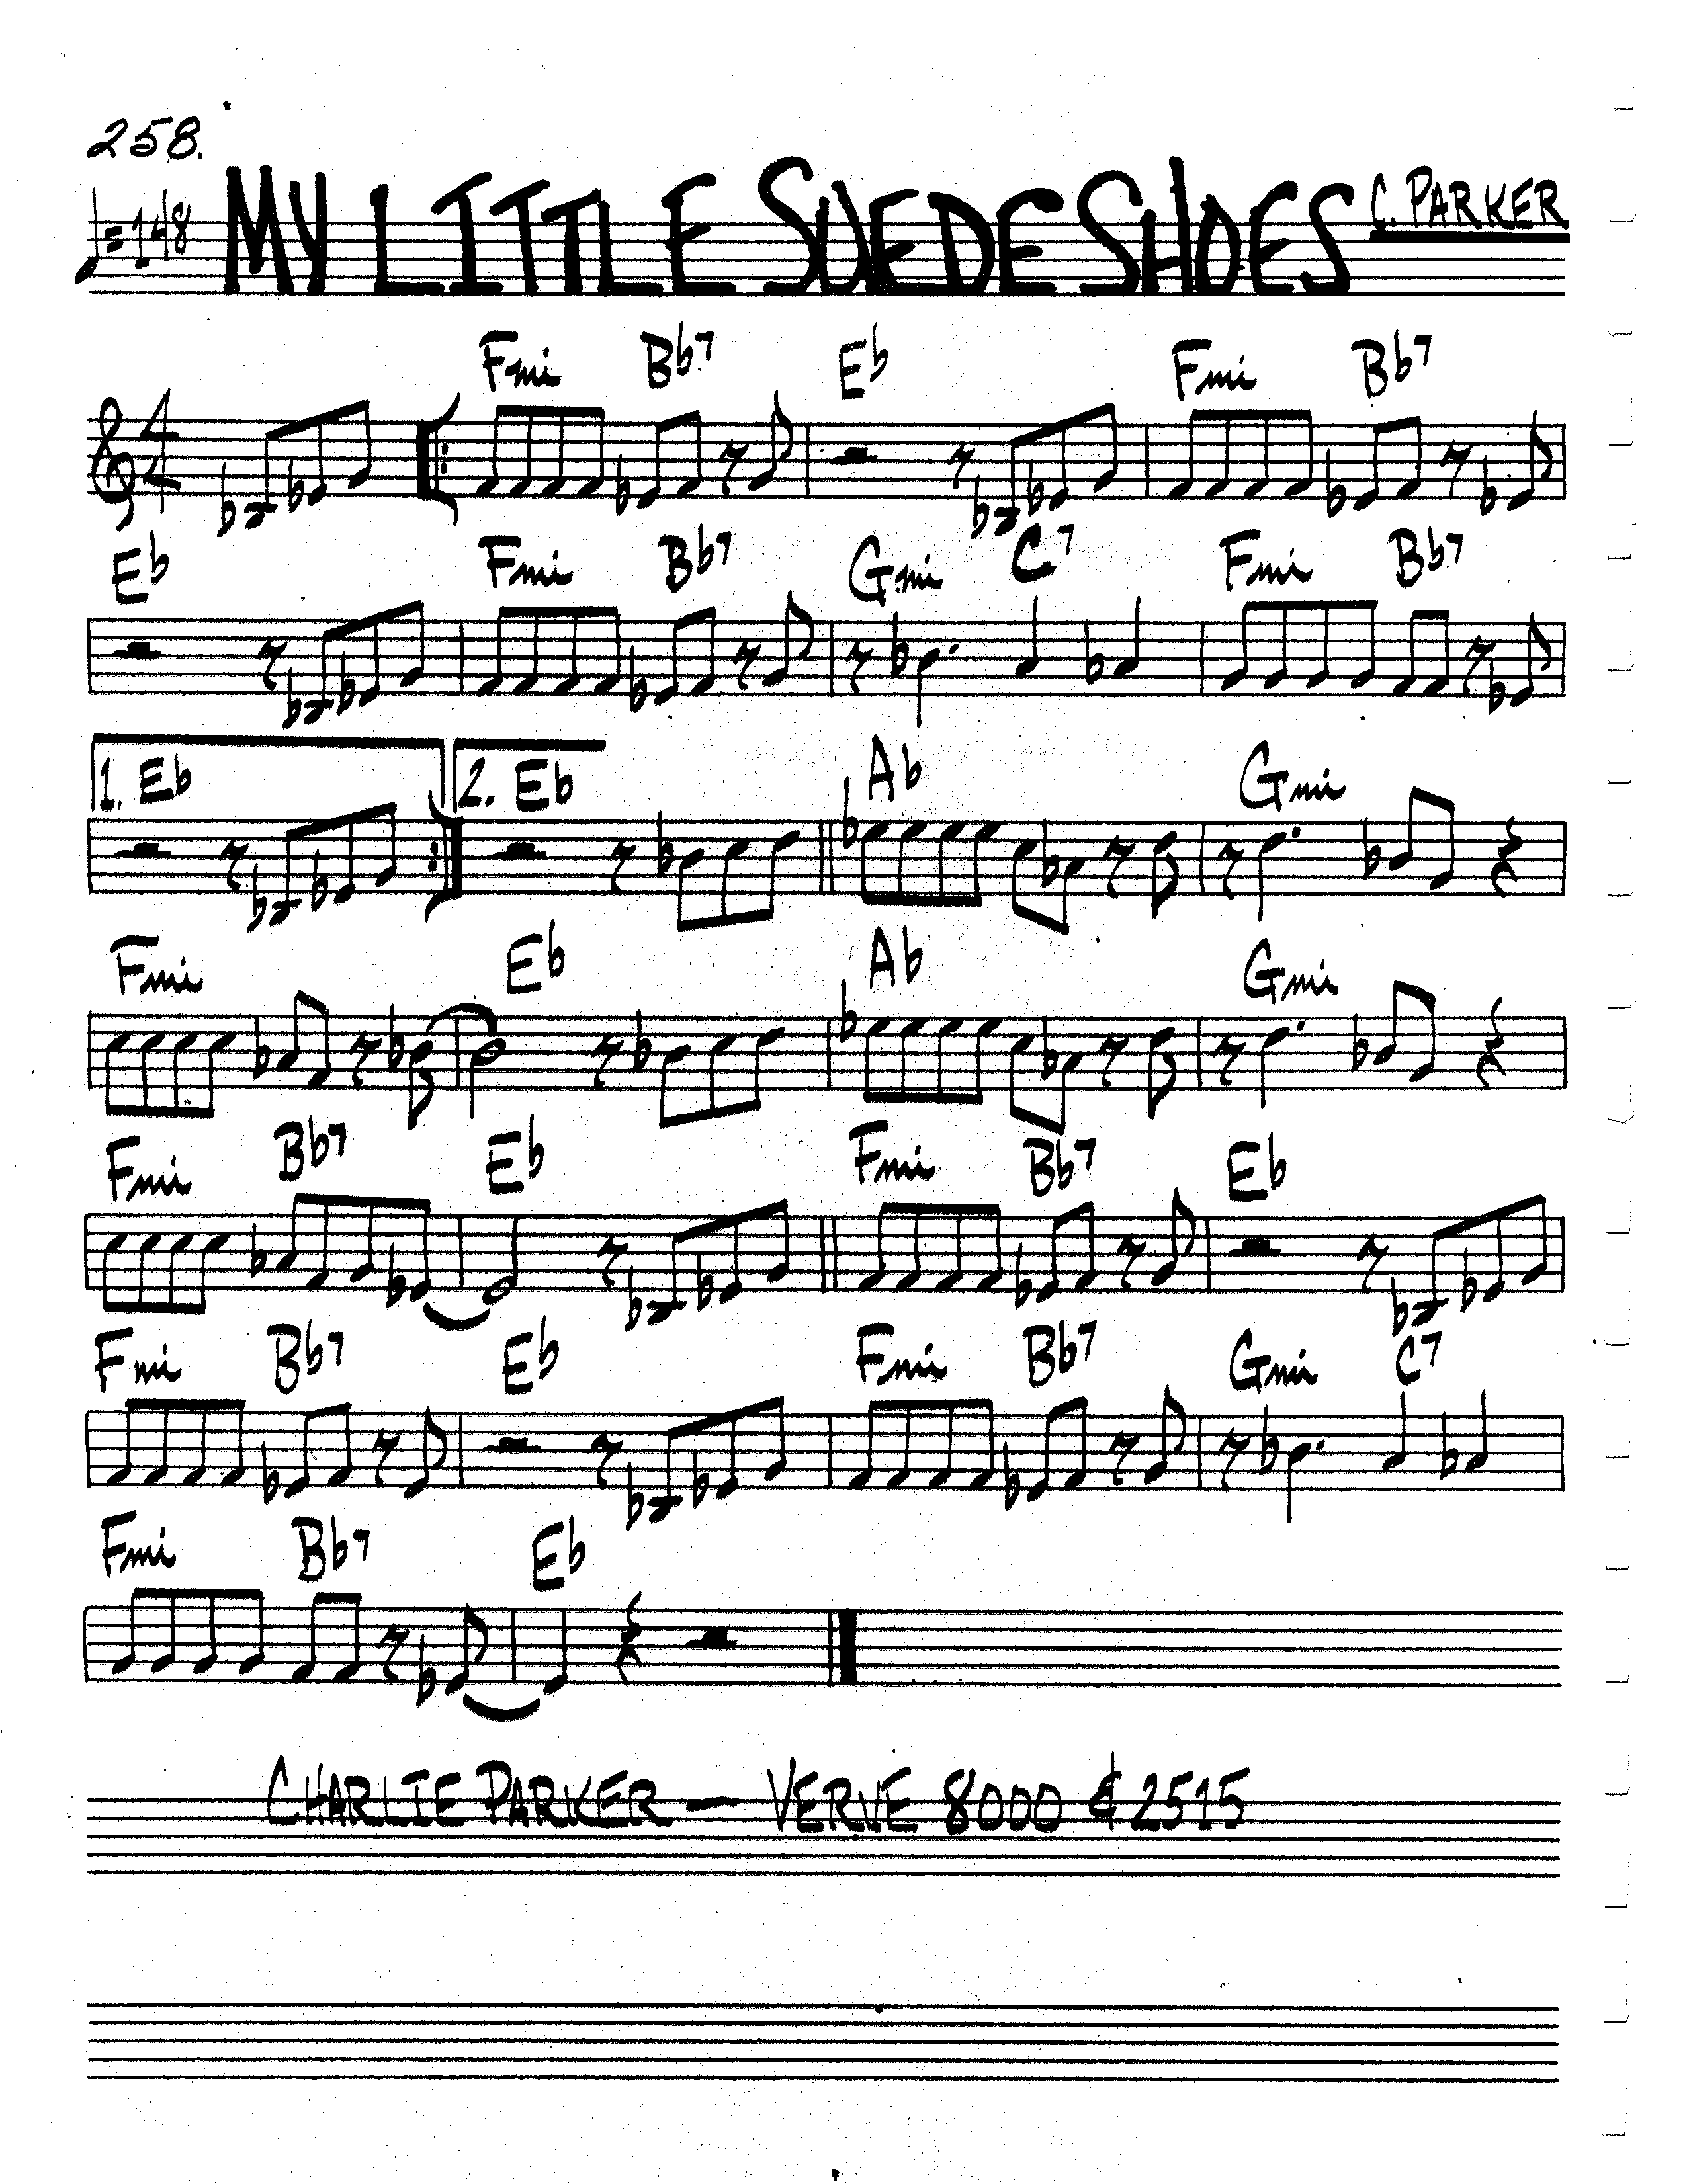 258.
♩=148 MY LITTLE SUEDE SHOES C. PARKER
Fmi Bb7 Eb Fmi Bb7
4
4
Eb Fmi Bb7 Gmi C7 Fmi Bb7
1. Eb 2. Eb Ab Gmi
Fmi Eb Ab Gmi
Fmi Bb7 Eb Fmi Bb7 Eb
Fmi Bb7 Eb Fmi Bb7 Gmi C7
Fmi Bb7 Eb
CHARLIE PARKER — VERVE 8000 & 2515